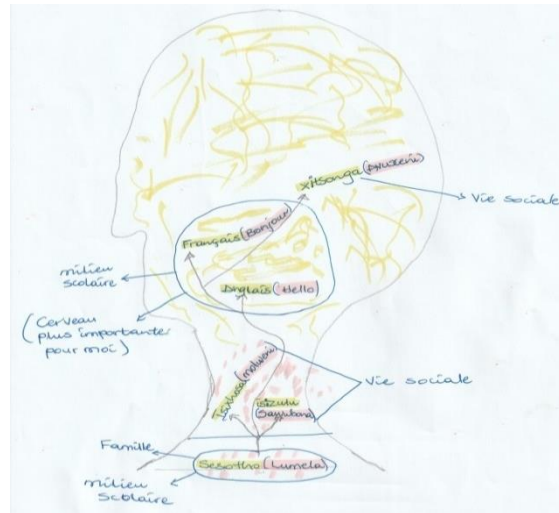 Xitsonga (Avuxeni)
Vie sociale
Français (Bonjour)
milieu
scolaire
Anglais (Hello)
(Cerveau
plus importante
pour moi)
Isixhosa (molweni)
isizulu
(Sayubona)
Vie sociale
Famille
Sesotho (Lumela)
milieu
Scolaire